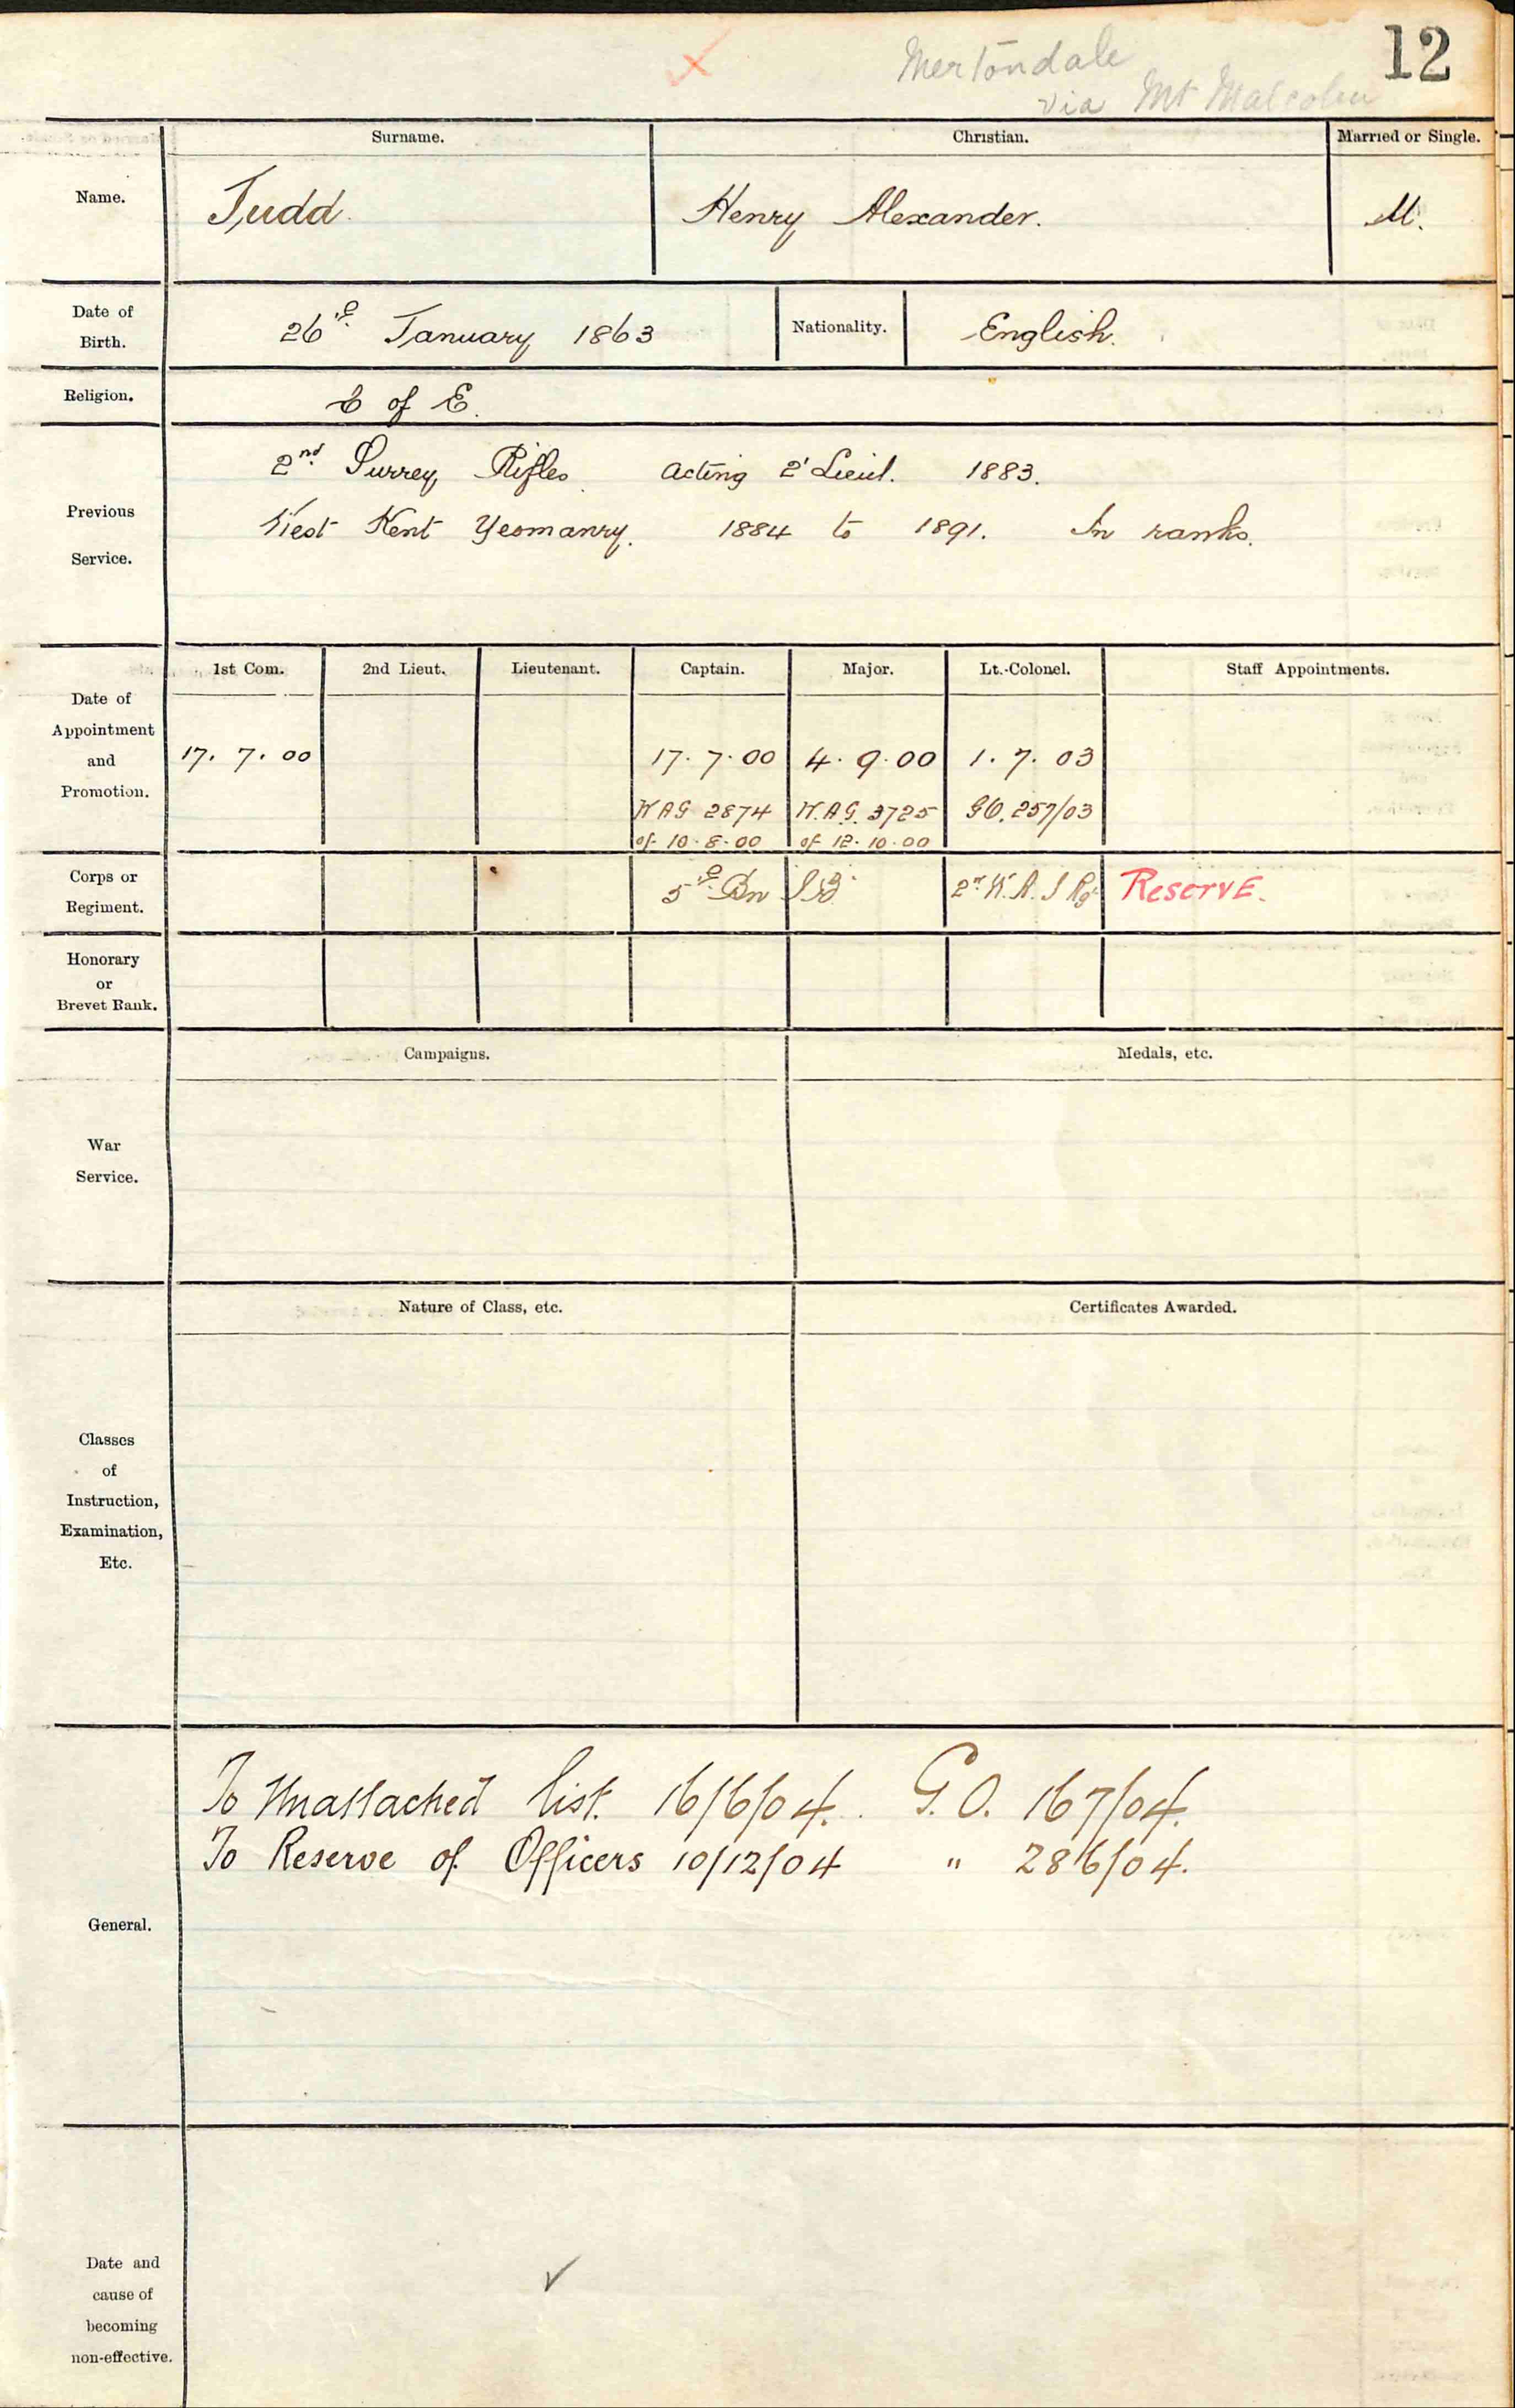 12
Mertondale
via Mt Malcolm
Surname. Christian. Married or Single.
Name. Judd. Henry Alexander. M.
Date of Birth. 26th January 1863 Nationality. English.
Religion. C of E.
Previous Service.
2nd Surrey Rifles. Acting 2' Lieut. 1883.
West Kent Yeomanry. 1884 to 1891. In ranks.
Date of Appointment and Promotion.
1st Com. 2nd Lieut. Lieutenant. Captain. Major. Lt.-Colonel. Staff Appointments.
17. 7. 00 17. 7. 00 4. 9. 00 1. 7. 03
WAG 2874 W.A.G. 3725 GO. 257/03
of 10-8-00 of 12-10-00
Corps or Regiment. 5th Bn IB 2nd W.A.I Rgt Reserve.
Honorary or Brevet Rank.
Campaigns. Medals, etc.
War Service.
Nature of Class, etc. Certificates Awarded.
Classes of Instruction, Examination, Etc.
General.
To Unattached list. 16/6/04. G.O. 167/04.
To Reserve of Officers 10/12/04 " 286/04.
Date and cause of becoming non-effective.